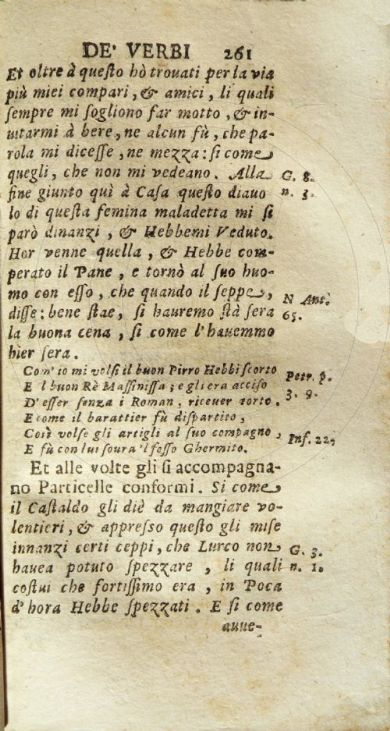 DE' VERBI 261
Et oltre à queſto hò trouati per la via
più miei compari, & amici, li quali
ſempre mi ſogliono far motto, & in-
uitarmi à bere, ne alcun fù, che pa-
rola mi diceſſe, ne mezza: ſi come
quegli, che non mi vedeano. Alla G. 8.
fine giunto quì à Caſa queſto diauo n. 3.
lo di queſta femina maladetta mi ſi
parò dinanzi, & Hebbemi Veduto.
Hor venne quella, & Hebbe com-
perato il Pane, e tornò al ſuo huo-
mo con eſſo, che quando il ſeppe, N Ant.
diſſe: bene ſtae, ſi hauremo ſtà ſera 65.
la buona cena, ſi come l'hauemmo
hier ſera.
Com'io mi volſi il buon Pirro Hebbi ſcorto
E 'l buon Rè Maſſiniſſa; e gli era auiſo Petr. p.
D'eſſer ſenza i Roman, riceuer torto. 3. 9.
E come il barattier fù diſpartito,
Coſì volſe gli artigli al ſuo compagno, Inf. 22,
E fù con lui ſoura 'l foſſo Ghermito.
Et alle volte gli ſi accompagna-
no Particelle conformi. Si come
il Caſtaldo gli diè da mangiare vo-
lentieri, & appreſſo queſto gli miſe
innanzi certi ceppi, che Lurco non G. 3.
hauea potuto ſpezzare, li quali n. 1.
coſtui che fortiſſimo era, in Poca
d'hora Hebbe ſpezzati. E ſi come
auue-